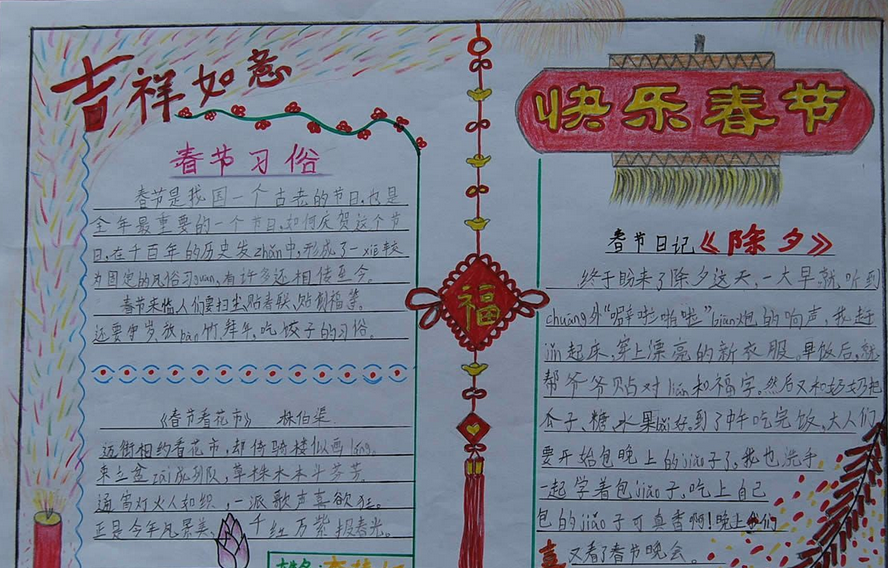 吉祥如意
春节习俗
春节是我国一个古老的节日,也是
全年最重要的一个节日,如何庆贺这个节
日,在千百年的历史发zhǎn中,形成了一xiē较
为固定的风俗习guàn,有许多还相传至今。
春节来临,人们要扫尘,贴春联,贴
还要守岁放bào竹,拜年,吃饺子的习俗。
《春节看花市》 林伯渠
迈街相约看花市,却倚骑楼似画
成列队,草株木本斗芬芳。
通宵灯火人和织,一派歌声喜欲狂。
正是今年风景美,千红万紫报春光。
福
快乐春节
春节日记《除夕》
终于盼来了除夕这天,一大早就听到
chuāng外“噼啦啪啦”biān炮的响声,我赶
jǐn起床,穿上漂亮的新衣服。早饭后,就
帮爷爷贴对lián和福字。然后又和奶奶把
瓜子、糖、水果bǎi好。到了中午吃完饭,大人们
要开始包晚上的jiǎo子了,我也洗手
一起学着包jiǎo子,吃上自己
包的jiǎo子可真香啊!晚上我们
又看了春节晚会。